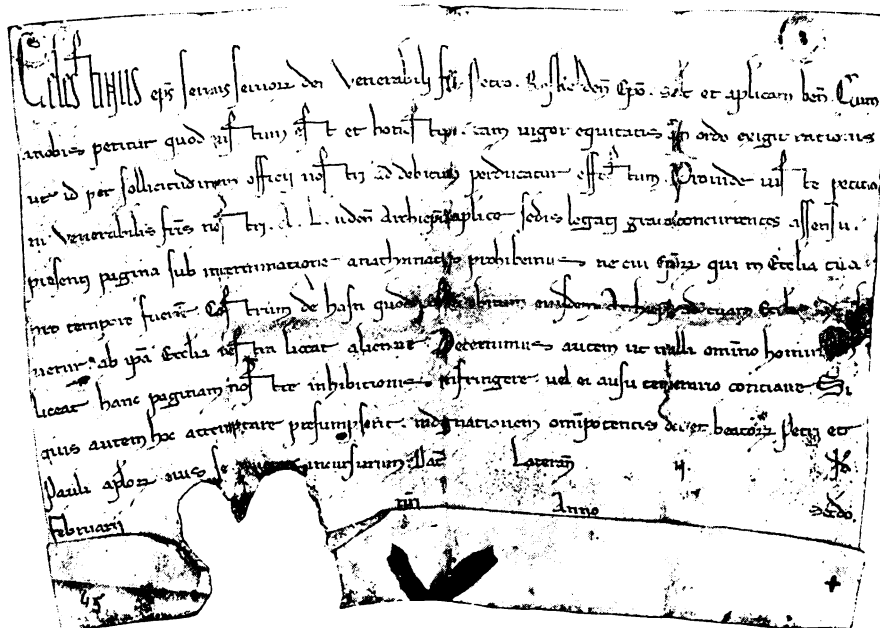 Celestinus eps servus servorꝝ dei Venerabili fri. Petro. Roskilden̄ Epo. Sal̄t et aplicam ben̄. Cum
a nobis petitur quod iustum est et honestum. tam vigor equitatis quam ordo exigit rationis
ut id per sollicitudinem officii nostri ad debitum perducatur effectum. Proinde iuste petitio
ni venerabilis fris nostri. A. L. uden̄ Archiepi aplice sedis legati gratū concurrentes assensū.
presenti pagina sub interminatione anathematis prohibemus ne cui Eporꝝ qui in Ecclia tua
pro tempore fuerit Castrum de hafn quod eiusdem Archiepi ad tuam Eccliam
ab ipa Ecclia vestra liceat alienare Decernimus autem ut nulli omnino hominum
liceat hanc paginam nostre inhibitionis infringere vel ei ausu temerario contraire Si
quis autem hoc attemptare presumpserit. indignationem omipotentis dei et beatorꝝ Petri et
Pauli aplorꝝ eius se incursurum Dat Lateran̄ ij. k̄
Februarij Anno Scd̄o.
45